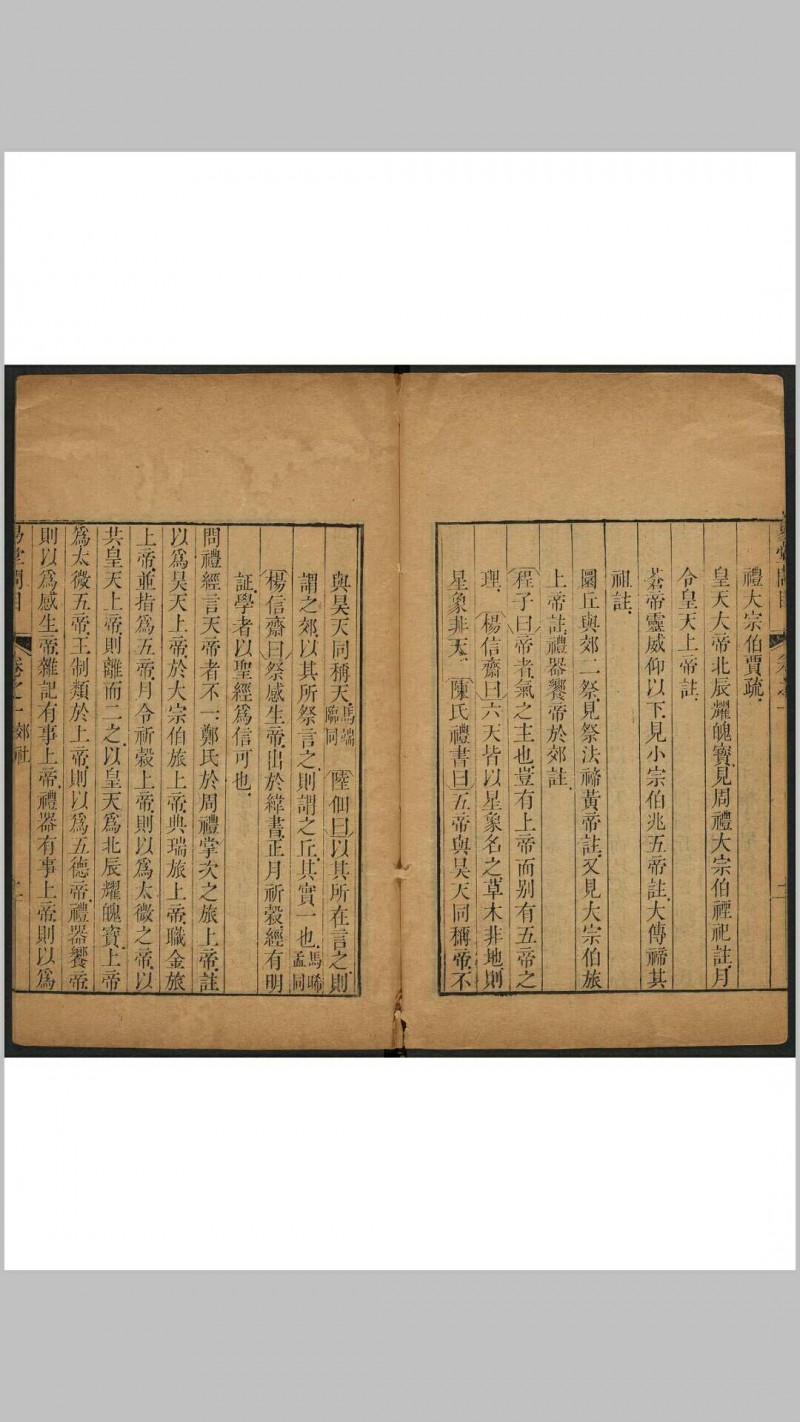 禮大宗伯賈疏
皇天大帝北辰耀魄寶見周禮大宗伯禋祀註月
令皇天上帝註
蒼帝靈威仰以下見小宗伯兆五帝註大傳禘其
祖註
圜丘與郊二祭見祭法禘黃帝註又見大宗伯旅
上帝註禮器饗帝於郊註
程子曰帝者氣之主也豈有上帝而别有五帝之
理楊信齋曰六天皆以星象名之草木非地則
星象非天陳氏禮書曰五帝與昊天同稱帝不
與昊天同稱天馬端臨同陸佃曰以其所在言之則
謂之郊以其所祭言之則謂之丘其實一也馬晞孟同
楊信齋曰祭感生帝出於緯書正月祈穀經有明
証學者以聖經爲信可也
問禮經言天帝者不一鄭氏於周禮掌次之旅上帝註
以爲昊天上帝於大宗伯旅上帝典瑞旅上帝職金旅
上帝並指爲五帝月令祈穀上帝則以爲太微之帝以
共皇天上帝則離而二之以皇天爲北辰耀魄寶上帝
爲太微五帝王制類於上帝則以爲五德帝禮器饗帝
則以爲感生帝雜記有事上帝禮器有事上帝則以爲
卷之一 郊社